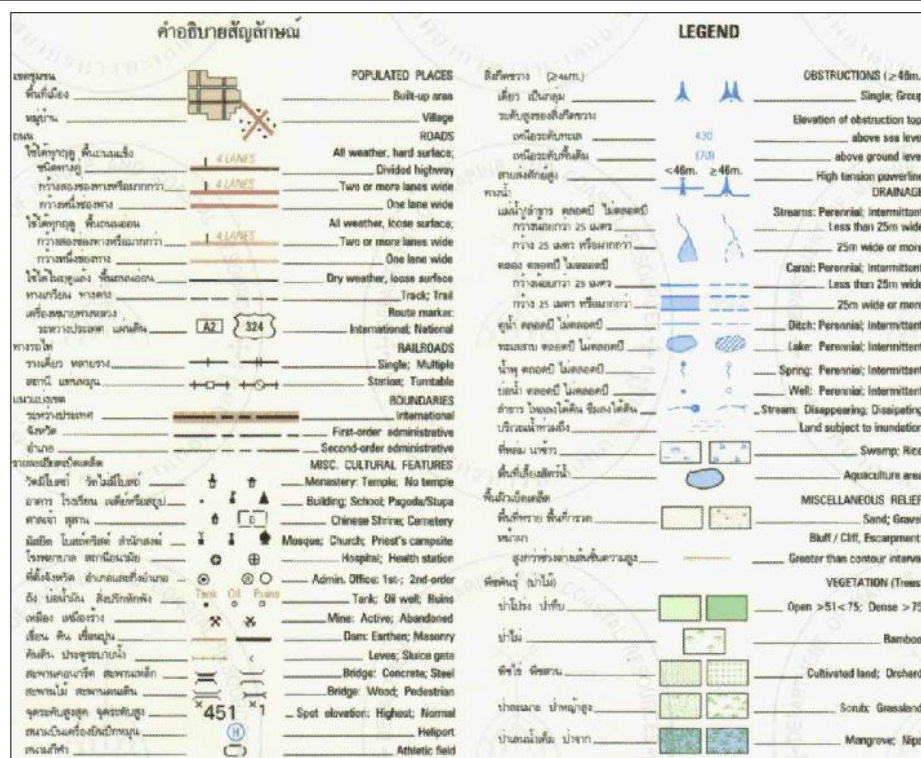 คำอธิบายสัญลักษณ์
เขตชุมชน POPULATED PLACES
พื้นที่เมือง Built-up area
หมู่บ้าน Village
ถนน ROADS
ใช้ได้ทุกฤดู พื้นถนนแข็ง All weather, hard surface;
ชนิดทางคู่ 4 LANES Divided highway
กว้างสองช่องทางหรือมากกว่า 4 LANES Two or more lanes wide
กว้างหนึ่งช่องทาง One lane wide
ใช้ได้ทุกฤดู พื้นถนนอ่อน All weather, loose surface;
กว้างสองช่องทางหรือมากกว่า 4 LANES Two or more lanes wide
กว้างหนึ่งช่องทาง One lane wide
ใช้ได้ในฤดูแล้ง พื้นถนนอ่อน Dry weather, loose surface
ทางเกวียน ทางคน Track; Trail
เครื่องหมายทางหลวง Route marker:
ระหว่างประเทศ แผ่นดิน A2 324 International; National
ทางรถไฟ RAILROADS
รางเดี่ยว หลายราง Single; Multiple
สถานี แท่นหมุน Station; Turntable
แนวแบ่งเขต BOUNDARIES
ระหว่างประเทศ International
จังหวัด First-order administrative
อำเภอ Second-order administrative
รายละเอียดเบ็ดเตล็ด MISC. CULTURAL FEATURES
วัดมีโบสถ์ วัดไม่มีโบสถ์ Monastery: Temple; No temple
อาคาร โรงเรียน เจดีย์หรือสถูป Building; School; Pagoda/Stupa
ศาลเจ้า สุสาน Chinese Shrine; Cemetery
มัสยิด โบสถ์คริสต์ สำนักสงฆ์ Mosque; Church; Priest's campsite
โรงพยาบาล สถานีอนามัย Hospital; Health station
ที่ตั้งจังหวัด อำเภอและกิ่งอำเภอ Admin. Office: 1st-; 2nd-order
ถัง บ่อน้ำมัน สิ่งปรักหักพัง Tank Oil Ruins Tank; Oil well; Ruins
เหมือง เหมืองร้าง Mine: Active; Abandoned
เขื่อน ดิน เขื่อนปูน Dam: Earthen; Masonry
คันดิน ประตูระบายน้ำ Leves; Sluice gate
สะพานคอนกรีต สะพานเหล็ก Bridge: Concrete; Steel
สะพานไม้ สะพานคนเดิน Bridge: Wood; Pedestrian
จุดระดับสูงสุด จุดระดับสูง 451 1 Spot elevation: Highest; Normal
สนามบินเครื่องบินปีกหมุน H Heliport
สนามกีฬา Athletic field
LEGEND
สิ่งกีดขวาง (≥46m.) OBSTRUCTIONS (≥46m.
เดี่ยว เป็นกลุ่ม Single; Group
ระดับสูงของสิ่งกีดขวาง Elevation of obstruction top
เหนือระดับทะเล 430 above sea leve
เหนือระดับพื้นดิน (70) above ground leve
สายส่งศักย์สูง <46m. ≥46m. High tension powerline
ทางน้ำ DRAINAGE
แม่น้ำลำธาร ตลอดปี ไม่ตลอดปี Streams: Perennial; Intermittent
กว้างน้อยกว่า 25 เมตร Less than 25m wide
กว้าง 25 เมตร หรือมากกว่า 25m wide or more
คลอง ตลอดปี ไม่ตลอดปี Canal: Perennial; Intermittent
กว้างน้อยกว่า 25 เมตร Less than 25m wide
กว้าง 25 เมตร หรือมากกว่า 25m wide or more
คูน้ำ ตลอดปี ไม่ตลอดปี Ditch: Perennial; Intermittent
ทะเลสาบ ตลอดปี ไม่ตลอดปี Lake: Perennial; Intermittent
น้ำพุ ตลอดปี ไม่ตลอดปี Spring: Perennial; Intermittent
บ่อน้ำ ตลอดปี ไม่ตลอดปี Well: Perennial; Intermittent
ลำธาร ไหลลงใต้ดิน ซึมลงใต้ดิน Stream: Disappearing; Dissipating
บริเวณน้ำท่วมถึง Land subject to inundation
ที่หล่ม นาข้าว Swamp; Rice
พื้นที่เลี้ยงสัตว์น้ำ Aquaculture area
พื้นผิวเบ็ดเตล็ด MISCELLANEOUS RELIEF
พื้นที่ทราย พื้นที่กรวด Sand; Grave
หน้าผา Bluff / Cliff, Escarpment:
สูงกว่าช่วงต่างเส้นชั้นความสูง Greater than contour interva
พืชพันธุ์ (ป่าไม้) VEGETATION (Trees
ป่าโปร่ง ป่าทึบ Open >51<75; Dense >75
ป่าไผ่ Bamboo
พืชไร่ พืชสวน Cultivated land; Orchard
ป่าละเมาะ ป่าหญ้าสูง Scrub; Grassland
ป่าเลนน้ำเค็ม ป่าจาก Mangrove; Nipa